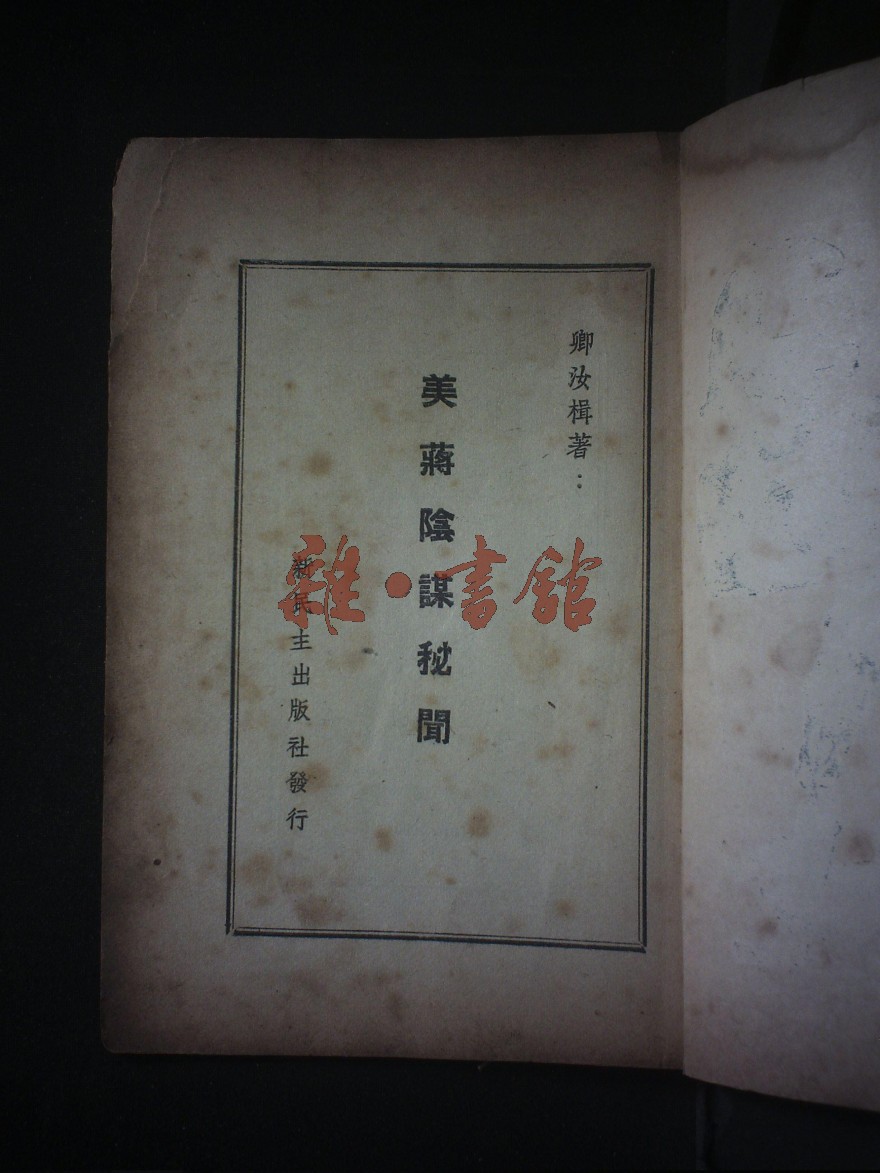 卿汝楫著：
美蔣陰謀秘聞
新民主出版社發行
雜·書館